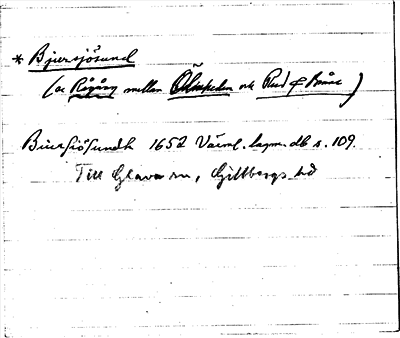 * Bjursjösund
(är Rågång mellan Ölmhulen och Rud f Brāne)
Biursiösundh 1652 Värml. lagm. db s. 109.
Till Glava sn, Gillbergs hd